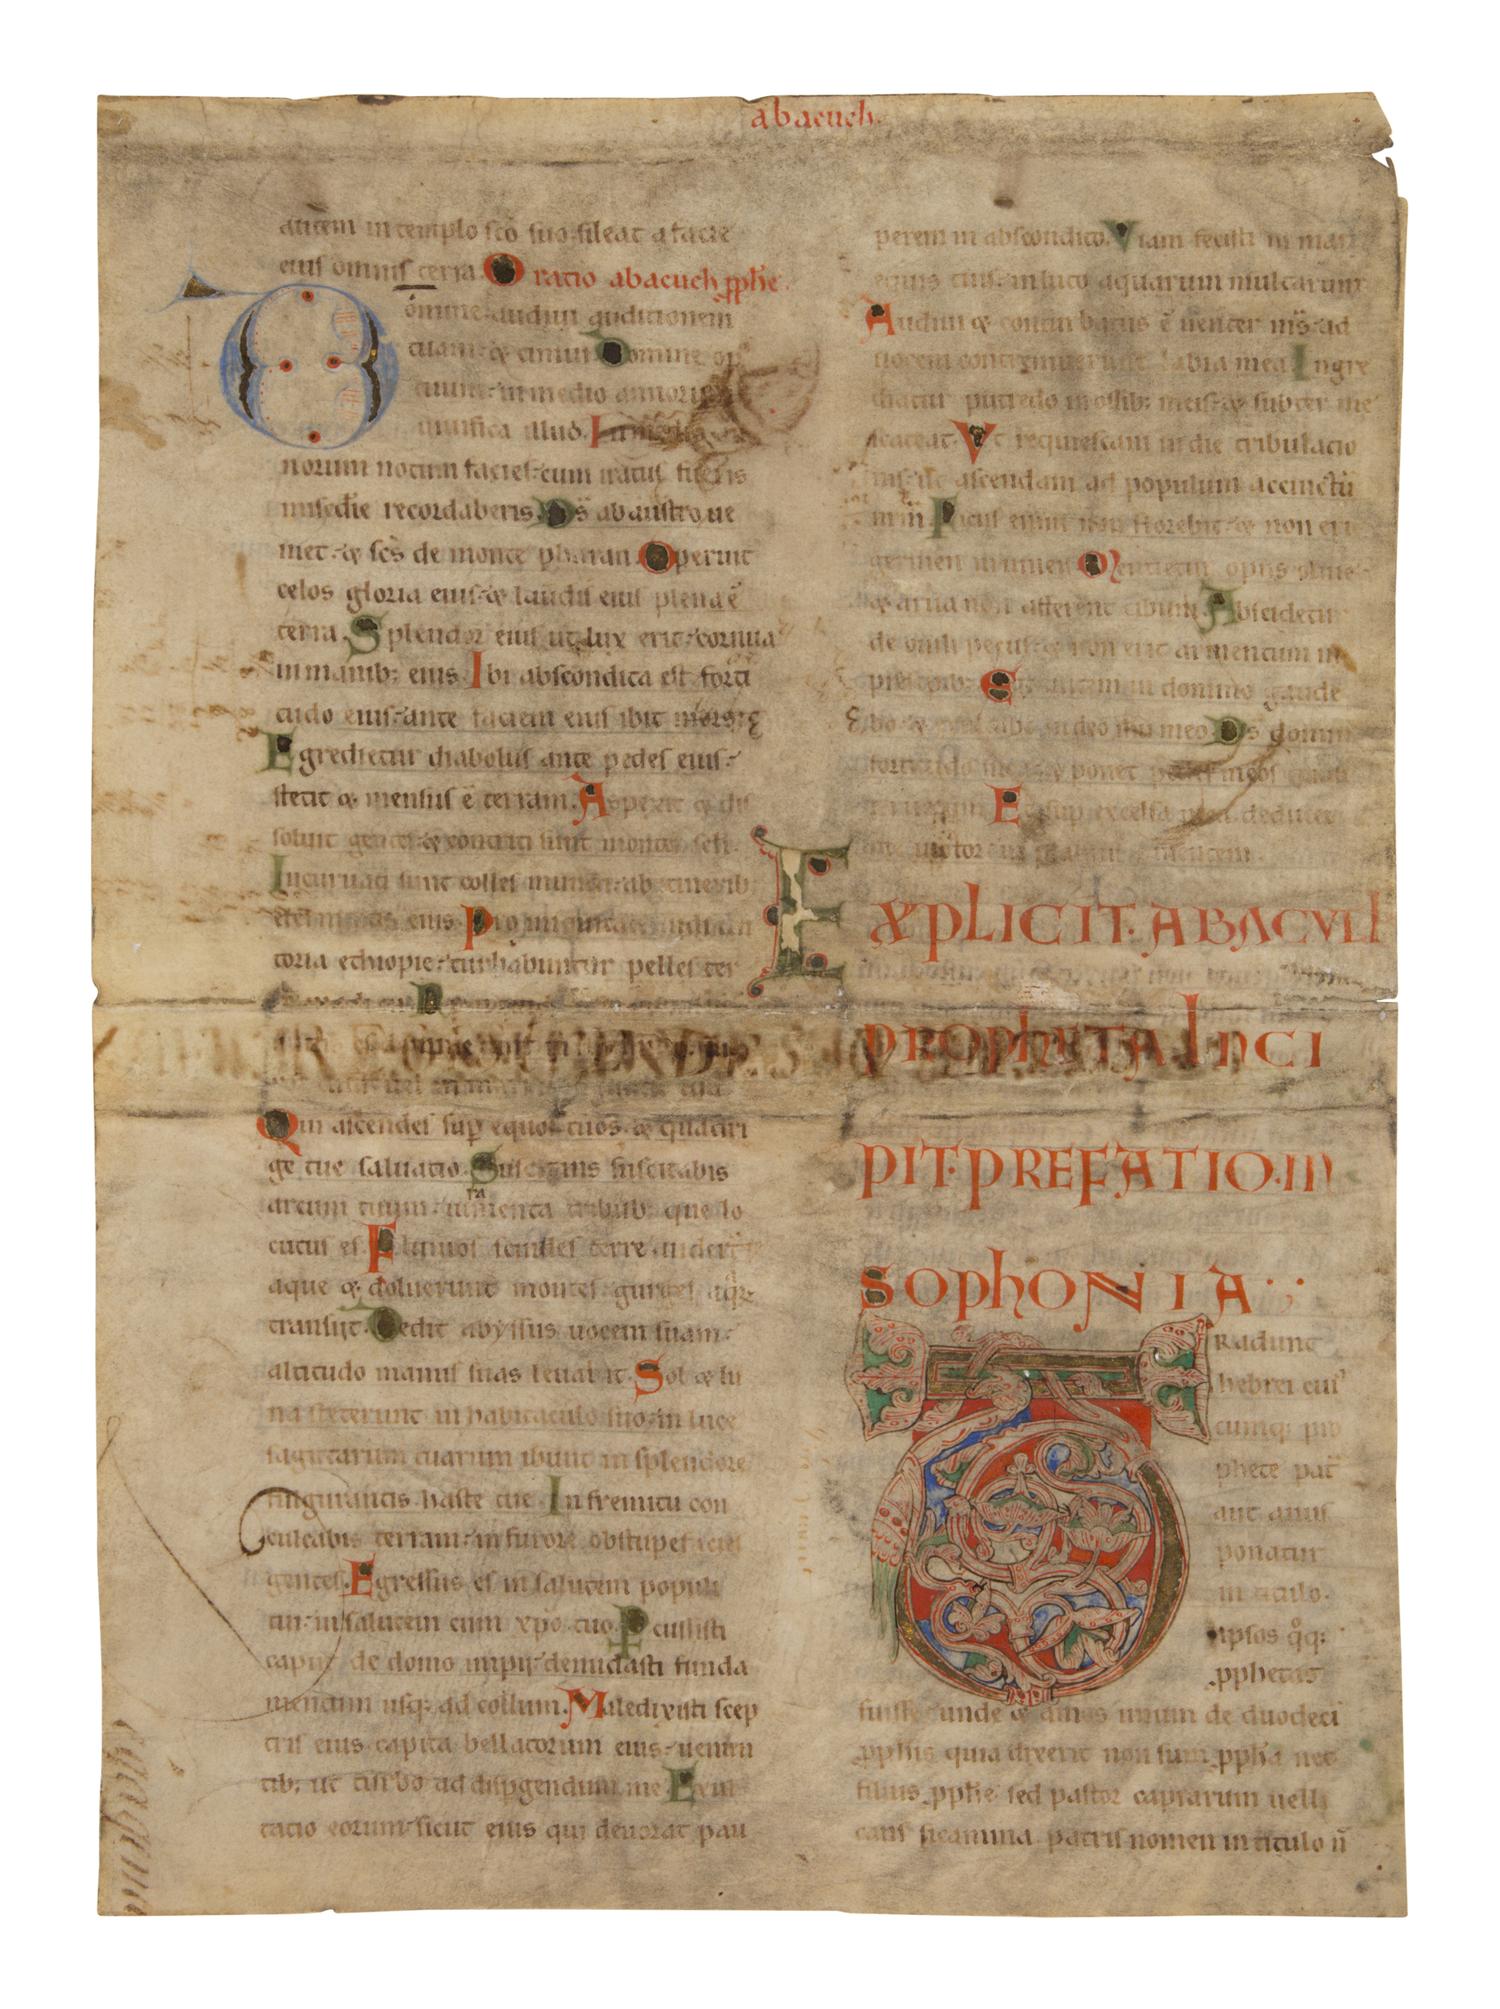 abacuch.
autem in templo sc̄o suo. sileat a facie
eius omnis terra. Oratio abacuch p̱phe.
Domine audiui auditionem
tuam. & timui. Domine op
tuum. in medio annorum
uiuifica illud. In
norum notum facies. cum iratus fueris
misc̄die recordaberis. Ds̄ ab austro ue
niet. & sc̄s de monte pharan. Operuit
celos gloria eius. & laudis eius plena ē
terra. Splendor eius ut lux erit. cornua
in manib; eius. Ibi abscondita est forti
tudo eius. ante faciem eius ibit mors.
Egredietur diabolus ante pedes eius.
stetit & mensus ē terram. Aspexit & dis
soluit gentes. & contriti sunt montes seli.
Incuruati sunt colles mundi. ab itinerib;
eternitatis eius. Pro iniquitate uidi ten
toria ethiopie. turbabuntur pelles ter
Qui ascendes sup̱ equos tuos. & quadri
ge tue saluatio. Suscitans suscitabis
arcum tuum. iuramenta tribub; que lo
cutus es. Fluuios scindes terre. uidert̄
aque & doluerunt montes. gurges aq̄r;
transijt. Dedit abyssus uocem suam.
altitudo manus suas leuauit. Sol & lu
na steterunt in habitaculo suo. in luce
sagittarum tuarum ibunt in splendore
fulgurantis haste tue. In fremitu con
culcabis terram. in furore obstupefacies
gentes. Egressus es in salutem populi
tui. in salutem cum xp̄o tuo. Percussisti
caput de domo impij. denudasti funda
mentum usq; ad collum. Maledixisti scep
tris eius. capita bellatorum eius. uenien
tib; ut turbo ad disp̱gendum me. Exul
tatio eorum. sicut eius qui deuorat pau
perem in abscondito. Viam fecisti in mari
equis tuis. in luto aquarum multarum.
Audiui & conturbatus ē uenter m̄s. ad
uocem contremuerunt labia mea. Ingre
diatur putredo in ossib; meis. & subter me
scateat. Vt requiescam in die tribulatio
nis. ut ascendam ad populum accinctū
nr̄m. Ficus enim non florebit. & non erit
germen in uineis. Mentietur opus oliue.
& arua non afferent cibum. Abscidetur
de ouili pecus. & non erit armentum in
presepib; Ego autem in domino gaude
bo. & exultabo in deo ihu meo. Ds domin
fortitudo mea. & ponet pedes meos quasi
ceruorum. Et sup excelsa mea deducet
me uictor in psalmis canentem.
EXPLICIT. ABACVCH
PROPHETA INCI
PIT. PREFATIO. IN
SOPHONIA
TRadunt
hebrei cui'
cumq; pro
phete pat̄
aut auus
ponatur
in titulo.
ipsos q̄q;
p̱phetas
fuisse. unde & amos unum de duodeci
p̱phis quia dixerit non sum p̱pha nec
filius p̱phe. sed pastor caprarum uelli
cans sicamina. patris nomen in titulo ñ